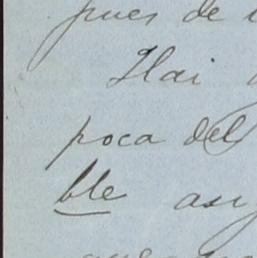 pues de
Hai
poca del
ble asi